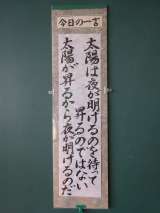 今日の一言
太陽は夜が明けるのを待って
昇るのではない
太陽が昇るから夜が明けるのだ